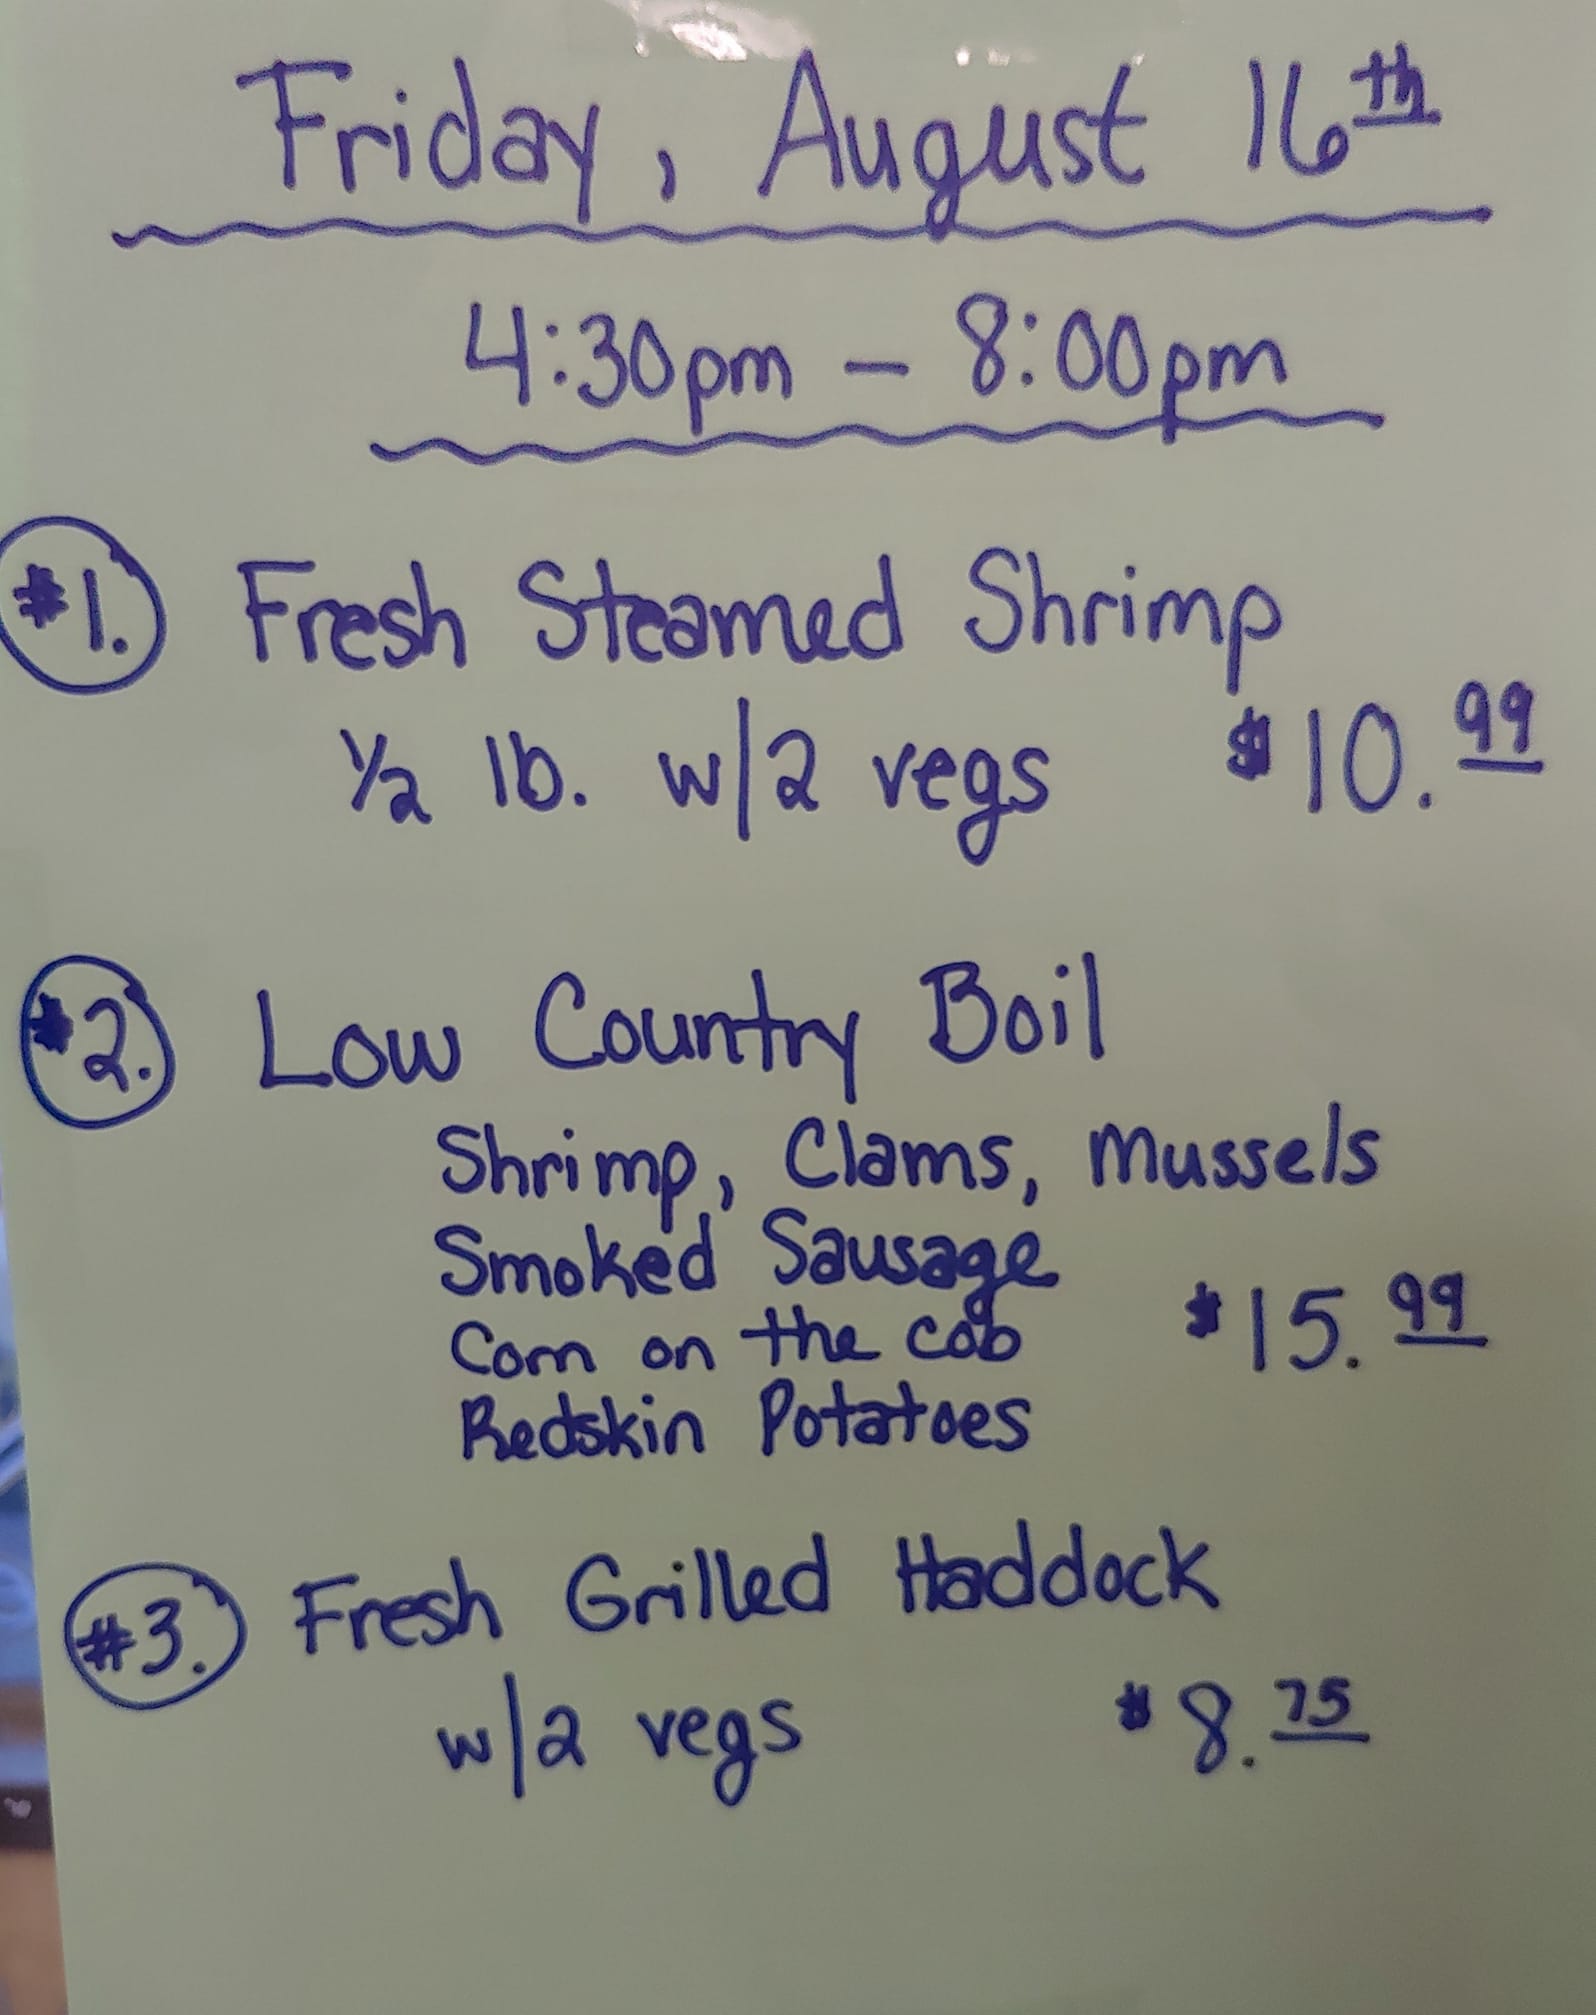 Friday, August 16th
4:30pm - 8:00pm
#1. Fresh Steamed Shrimp
1/2 lb. w/2 vegs $10.99
#2. Low Country Boil
Shrimp, Clams, Mussels
Smoked Sausage
Corn on the cob $15.99
Redskin Potatoes
#3. Fresh Grilled Haddock
w/2 vegs $8.75